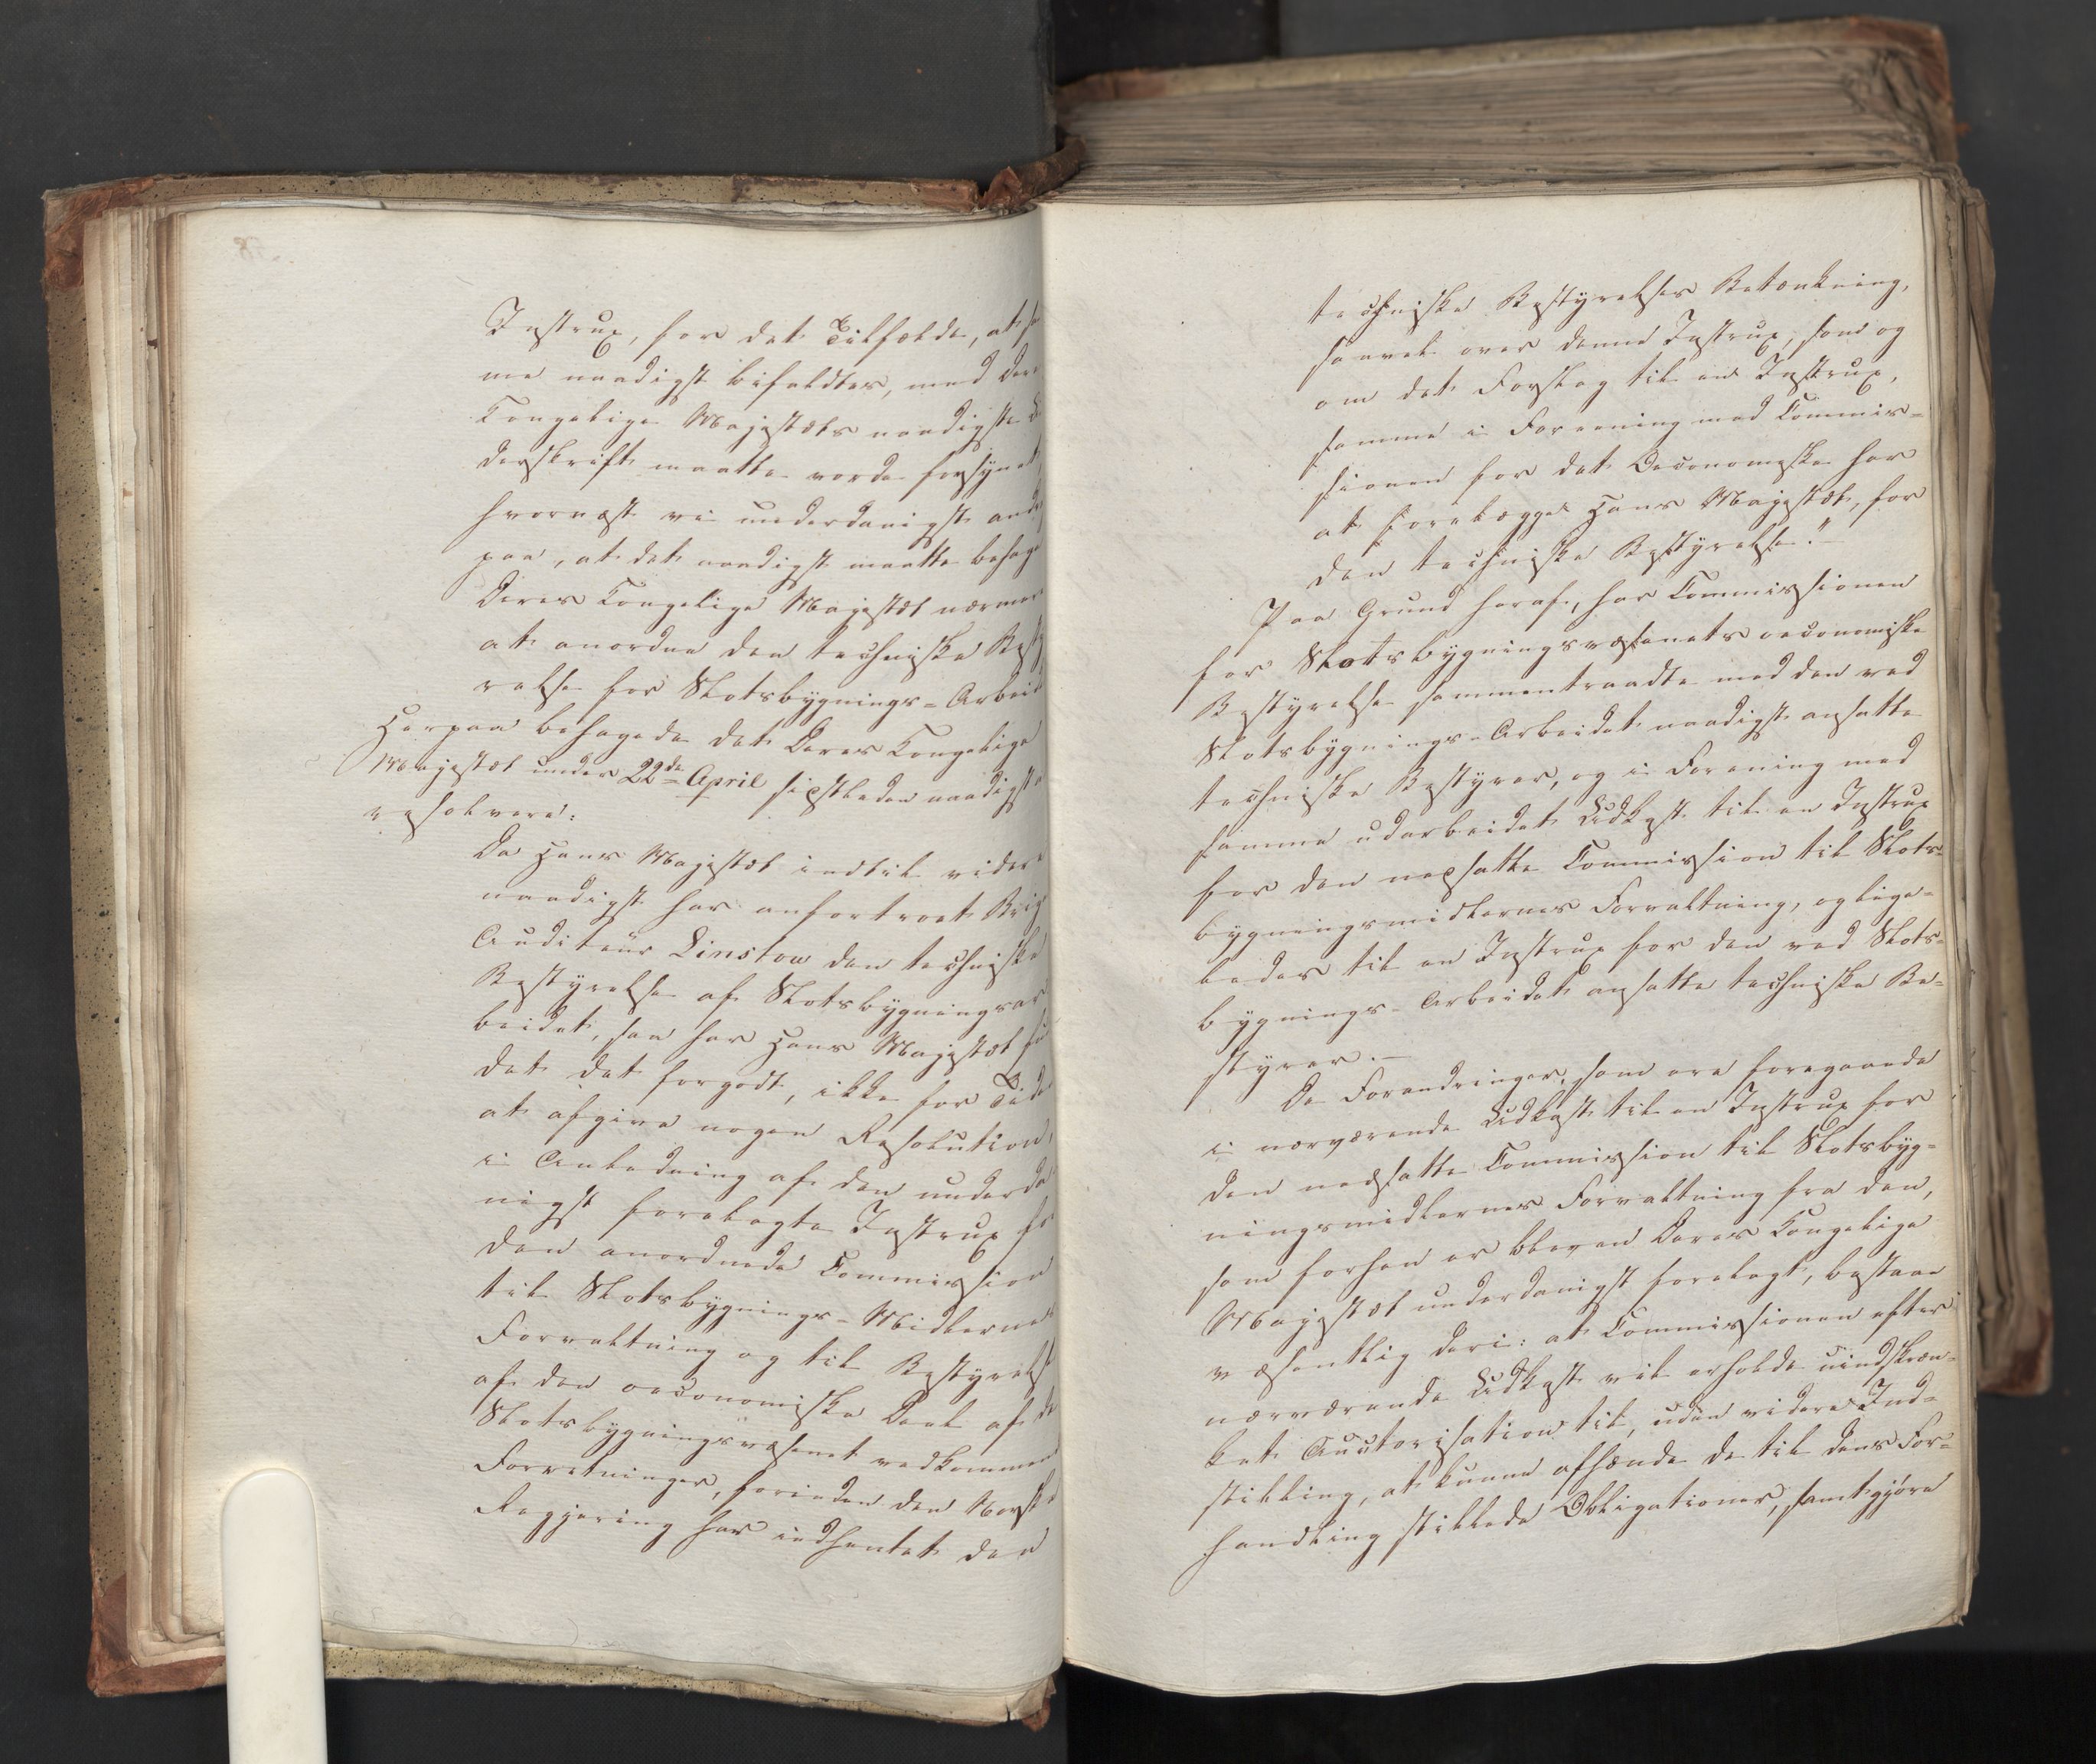 Instrux, for det Tilfælde, at sa
me naadigst bifaldtes, med Dere
Kongelige Majestæts naadigste U
derskrift maatte vorde forsynet,
hvornæst vi underdanigst andr
paa, at det naadigst maatte behage
Deres Kongelige Majestæt nærmer
at anordne den techniske Besty
relse for Slotsbygnings-Arbeid
Herpaa behagede det Deres Kongelige
Majestæt under 22de April sidstleden naadigst
resolvere:
Da Hans Majestæt indtil videre
naadigst har anfortroet Brig
Auditeur Linstow den techniske
Bestyrelse af Slotsbygningsar
beidet, saa har Hans Majestæt fun
det det forgodt, ikke for Tide
at afgive nogen Resolution,
i Anledning af den underda
nigst forelagte Instrux fo
den anordnede Commission
til Slotsbygnings-Midlernes
Forvaltning og til Bestyrelse
af den oeconomiske Deel af de
Slotsbygningsvæsenet vedkommen
Forretninger, forinden den Norske
Regjering har indhentet den
techniske Bestyrelses Betænkning,
saavel over denne Instrux, som og
om det Forslag til en Instrux,
samme i Foreening med Commis-
sionen for det Oeconomiske har
at forelægge Hans Majestæt, for
den techniske Bestyrelse."
Paa Grund heraf, har Commissionen
for Slotsbygningsvæsenets oeconomiske
Bestyrelse sammentraadte med den ved
Slotsbygnings-Arbeidet naadigst ansatte
techniske Bestyrer, og i Forening med
samme udarbeidet Udkast til en Instrux
for den nedsatte Commission til Slots-
bygningsmidlernes Forvaltning, og lige-
ledes til en Instrux for den ved Slots-
bygnings-Arbeidet ansatte techniske Be-
styrer.
De Forandringer, som ere foregaaede
i nærværende Udkast til en Instrux for
den nedsatte Commission til Slotsbyg-
ningsmidlernes Forvaltning fra den,
som forhen er bleven Deres Kongelige
Majestæt underdanigst forelagt, bestaae
væsentlig deri: at Commissionen efter
nærværende Udkast vil erholde uindskræn-
ket Auctorisation til, uden videre Ind-
stilling, at kunne afhænde de til dens For-
handling stillede Obligationer, samt gjøre